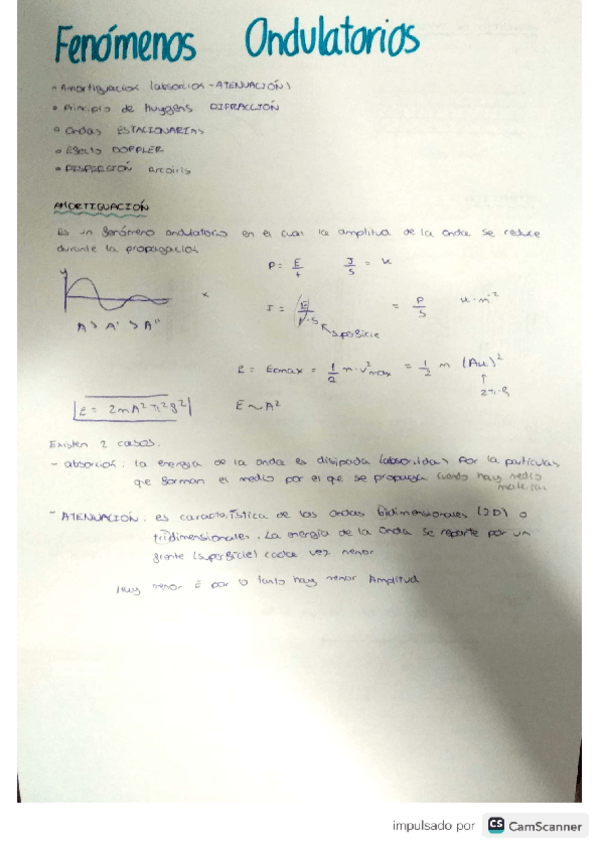 Fenómenos Ondulatorios
- Amortiguación (absorción - ATENUACIÓN)
o Principio de Huygens DIFRACCIÓN
o Ondas ESTACIONARIAS
o Efecto DOPPLER
o DISPERSIÓN arcoiris
AMORTIGUACIÓN
Es un fenómeno ondulatorio en el cual la amplitud de la onda se reduce
durante la propagación
P = E/t J/S = W
y x
I = E/t·S = P/S W·m⁻²
A > A' > A''
superficie
E = Ecmax = 1/2 m·v²max = 1/2 m (Aω)²
2π·f
E = 2mA²π²f² E ~ A²
Existen 2 casos:
- absorción: la energía de la onda es disipada (absorbida) por la partículas
que forman el medio por el que se propaga cuando hay medio
material
- ATENUACIÓN: es característica de las ondas bidimensionales (2D) o
tridimensionales. La energía de la onda se reparte por un
frente (superficie) cada vez menor
Muy menor E por lo tanto hay menor Amplitud
impulsado por CS CamScanner